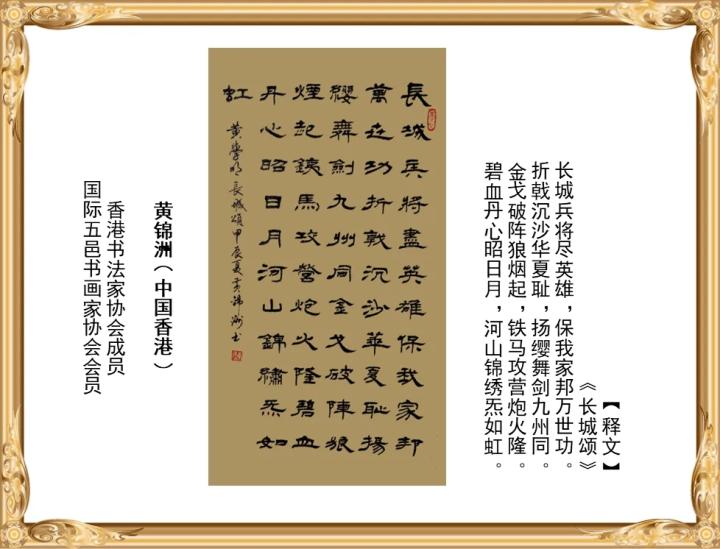 【释文】
《长城颂》
长城兵将尽英雄，保我家邦万世功。
折戟沉沙华夏耻，扬缨舞剑九州同。
金戈破阵狼烟起，铁马攻营炮火隆。
碧血丹心昭日月，河山锦绣炁如虹。
長城兵將盡英雄保我家邦
萬世功折戟沉沙華夏恥揚
纓舞劍九州同金戈破陣狼
煙起銕馬攻營炮火隆碧血
丹心昭日月河山錦繡炁如
虹
黄學明長城頌甲辰夏黄錦洲书
黄锦洲（中国香港）
香港书法家协会成员
国际五邑书画家协会会员